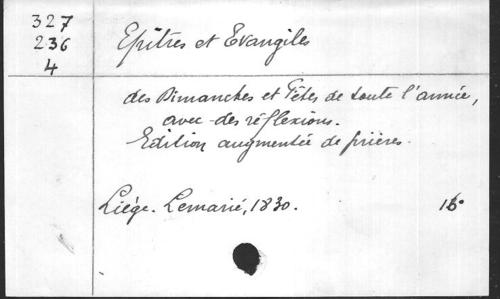 327
236
4
Epîtres et Evangiles
des Dimanches et Fêtes de toute l'année,
avec des réflexions.
Edition augmentée de prières.
Liége. Lemarié, 1830.